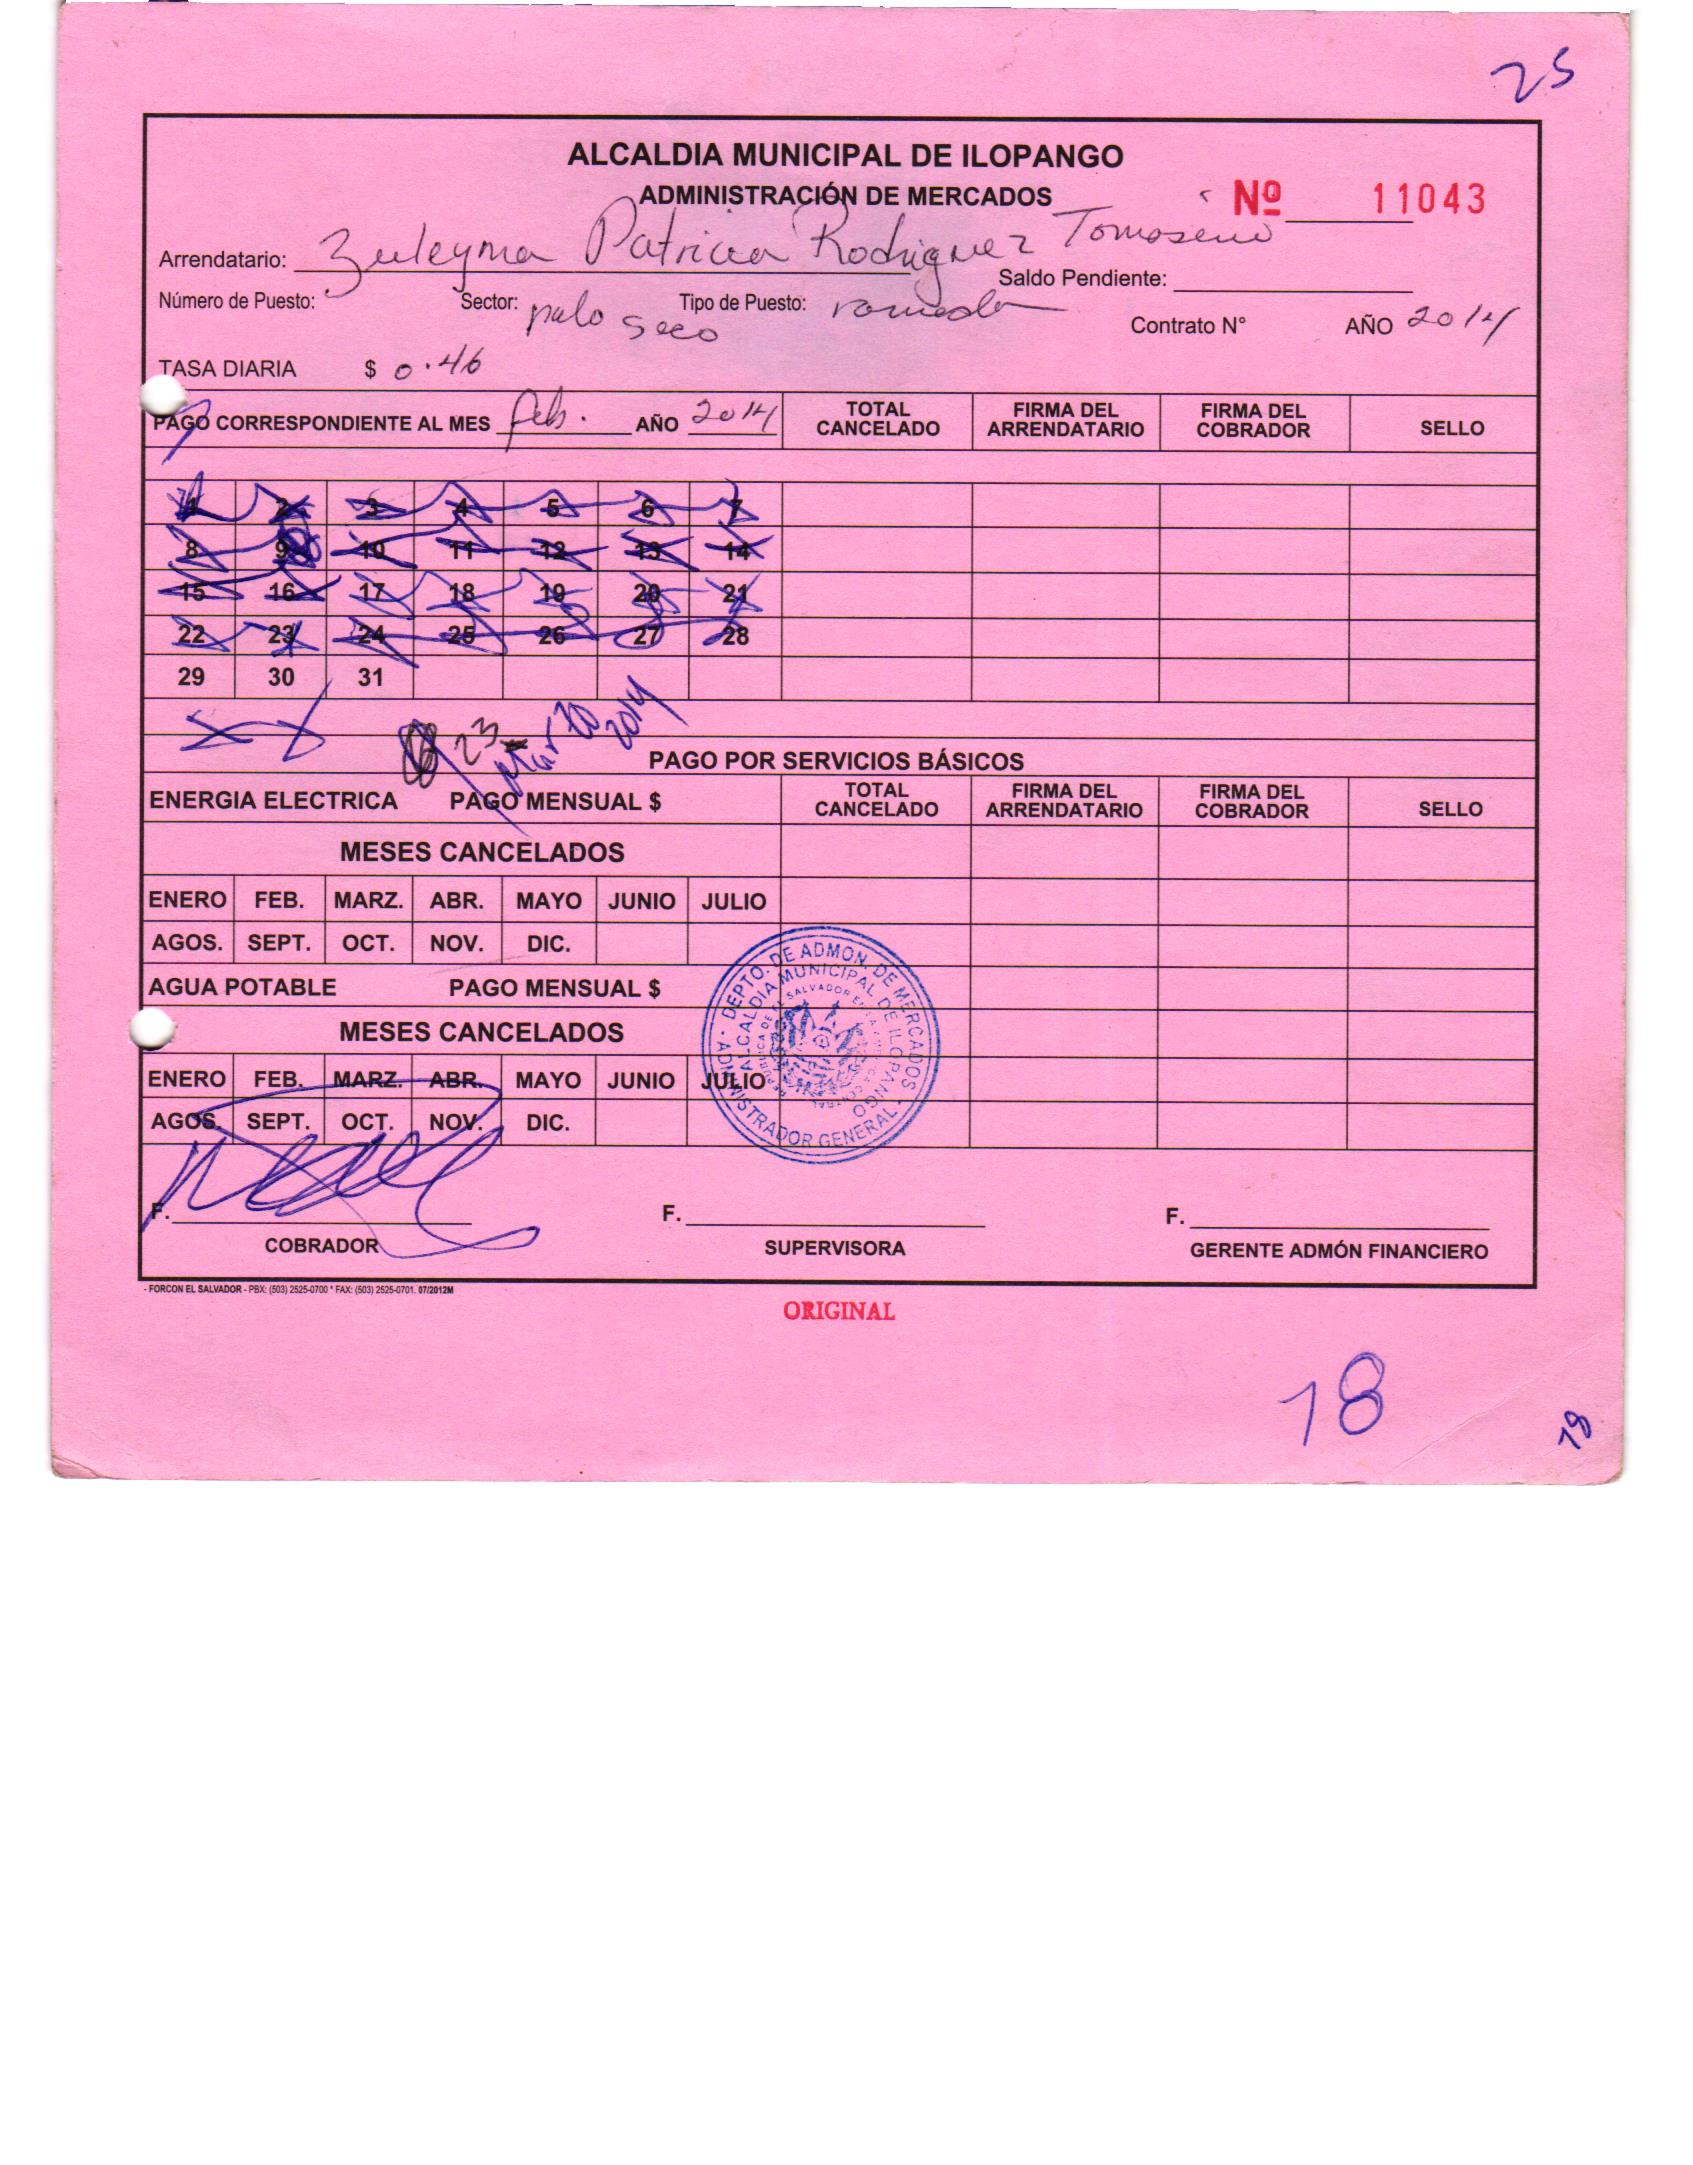 25
ALCALDIA MUNICIPAL DE ILOPANGO
ADMINISTRACIÓN DE MERCADOS
Nº 11043
Arrendatario: Zuleyma Patricia Rodriguez Tomaseno
Saldo Pendiente:
Número de Puesto: Sector: palo seco Tipo de Puesto:
Contrato N° AÑO 2014
TASA DIARIA $ 0.46
PAGO CORRESPONDIENTE AL MES feb. AÑO 2014 TOTAL CANCELADO FIRMA DEL ARRENDATARIO FIRMA DEL COBRADOR SELLO
1 2 3 4 5 6 7
8 9 10 11 12 13 14
15 16 17 18 19 20 21
22 23 24 25 26 27 28
29 30 31
23 Marzo 2014
PAGO POR SERVICIOS BÁSICOS
ENERGIA ELECTRICA PAGO MENSUAL $ TOTAL CANCELADO FIRMA DEL ARRENDATARIO FIRMA DEL COBRADOR SELLO
MESES CANCELADOS
ENERO FEB. MARZ. ABR. MAYO JUNIO JULIO
AGOS. SEPT. OCT. NOV. DIC.
AGUA POTABLE PAGO MENSUAL $
MESES CANCELADOS
ENERO FEB. MARZ. ABR. MAYO JUNIO JULIO
AGOS. SEPT. OCT. NOV. DIC.
DEPTO. DE ADMON. DE MERCADOS
ALCALDIA MUNICIPAL DE ILOPANGO
ADMINISTRADOR GENERAL
F. F. F.
COBRADOR SUPERVISORA GERENTE ADMÓN FINANCIERO
- FORCON EL SALVADOR - PBX: (503) 2525-0700 * FAX: (503) 2525-0701. 07/2012M
ORIGINAL
18
18